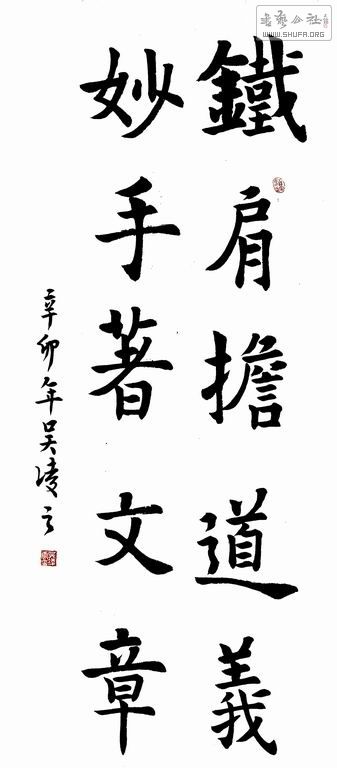 鐵肩擔道義
妙手著文章
辛卯年吴凌云
書藝公社
WWW.SHUFA.ORG